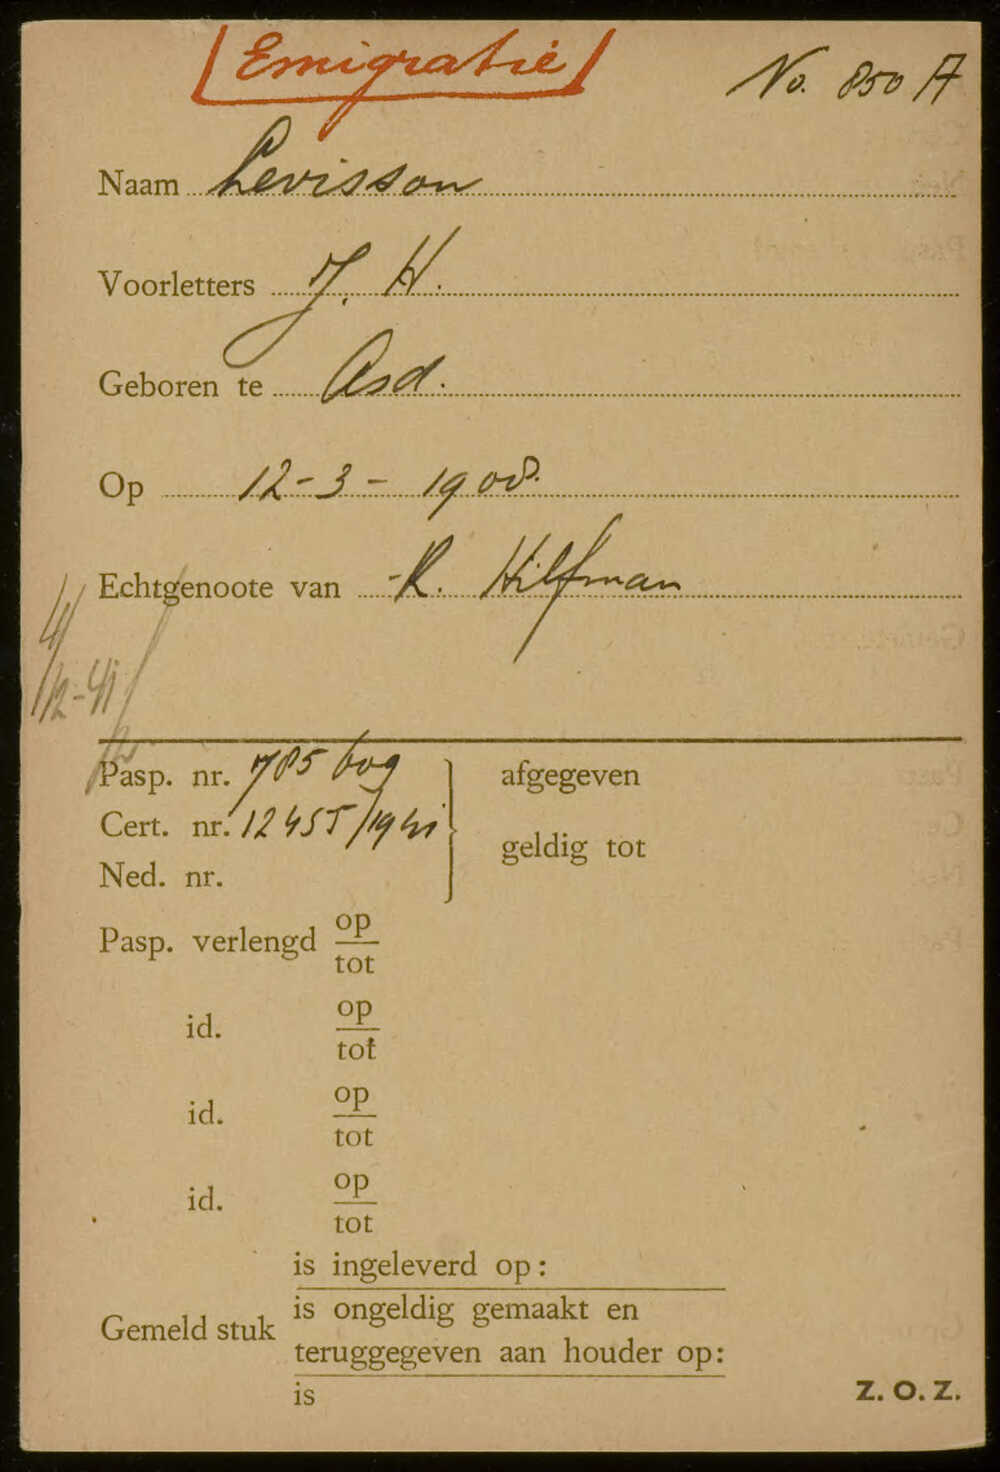 Emigratie
No. 850 A
Naam Levisson
Voorletters J. H.
Geboren te Asd.
Op 12-3-1908.
Echtgenoote van R. Hilfman
4/12-41
Pasp. nr. 785 afgegeven
Cert. nr. 12455/1941 geldig tot
Ned. nr.
Pasp. verlengd op
tot
id. op
tot
id. op
tot
id. op
tot
is ingeleverd op:
Gemeld stuk is ongeldig gemaakt en
teruggegeven aan houder op:
is
Z. O. Z.